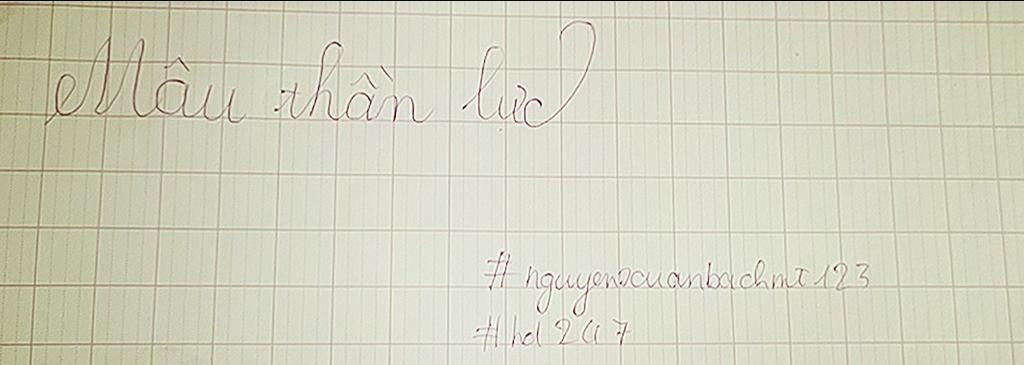 Mâu thần lực
#nguyenxuanbachmt123
#hd247